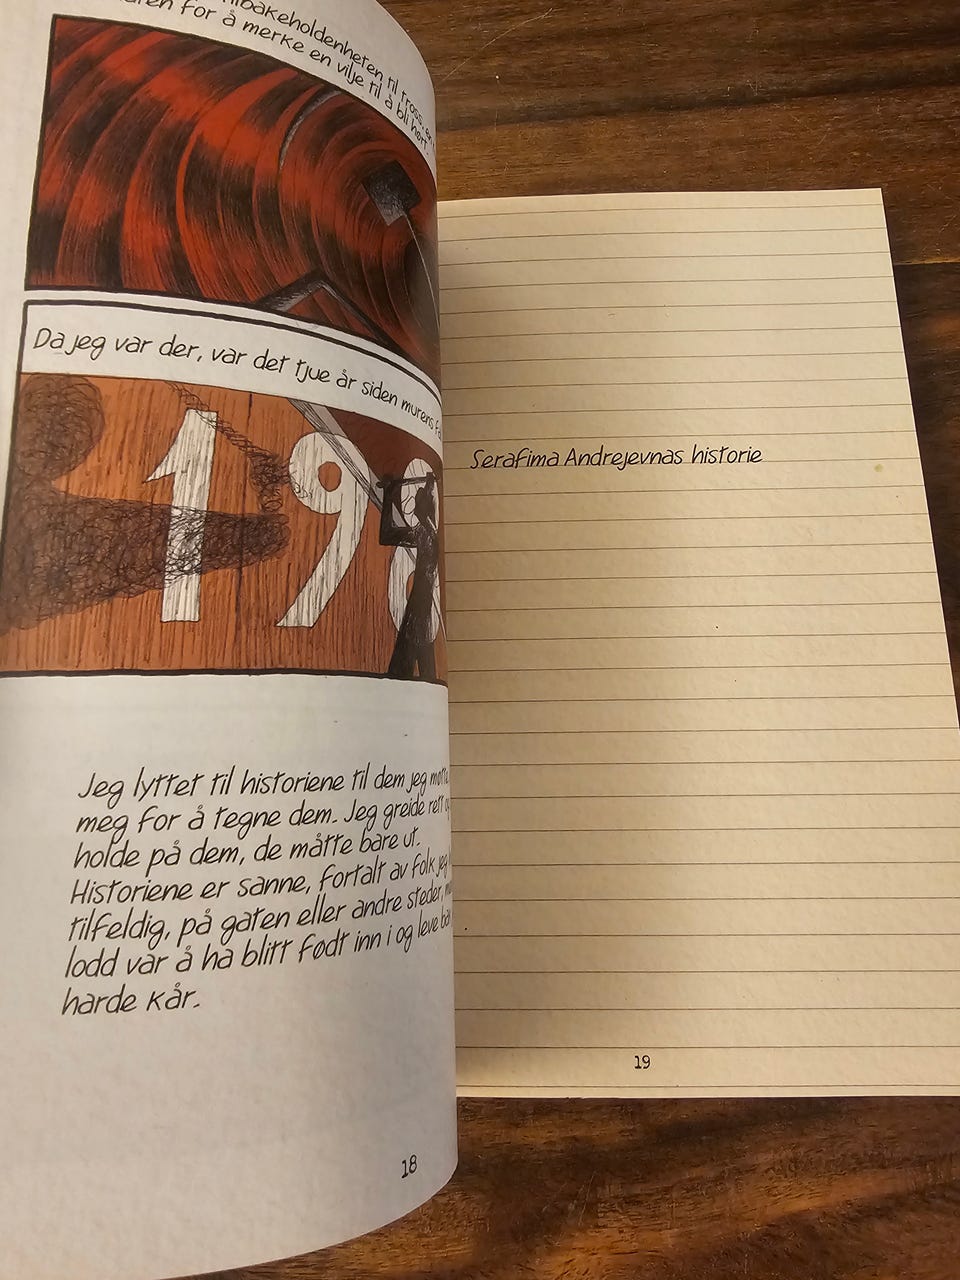 tilbakeholdenheten til tross, en
for å merke en vilje til å bli hørt.
Da jeg var der, var det tjue år siden murens
198
Jeg lyttet til historiene til dem jeg møtte,
meg for å tegne dem. Jeg greide rett
holde på dem, de måtte bare ut.
Historiene er sanne, fortalt av folk jeg
tilfeldig, på gaten eller andre steder,
lodd var å ha blitt født inn i og leve
harde kår.
18
Serafima Andrejevnas historie
19